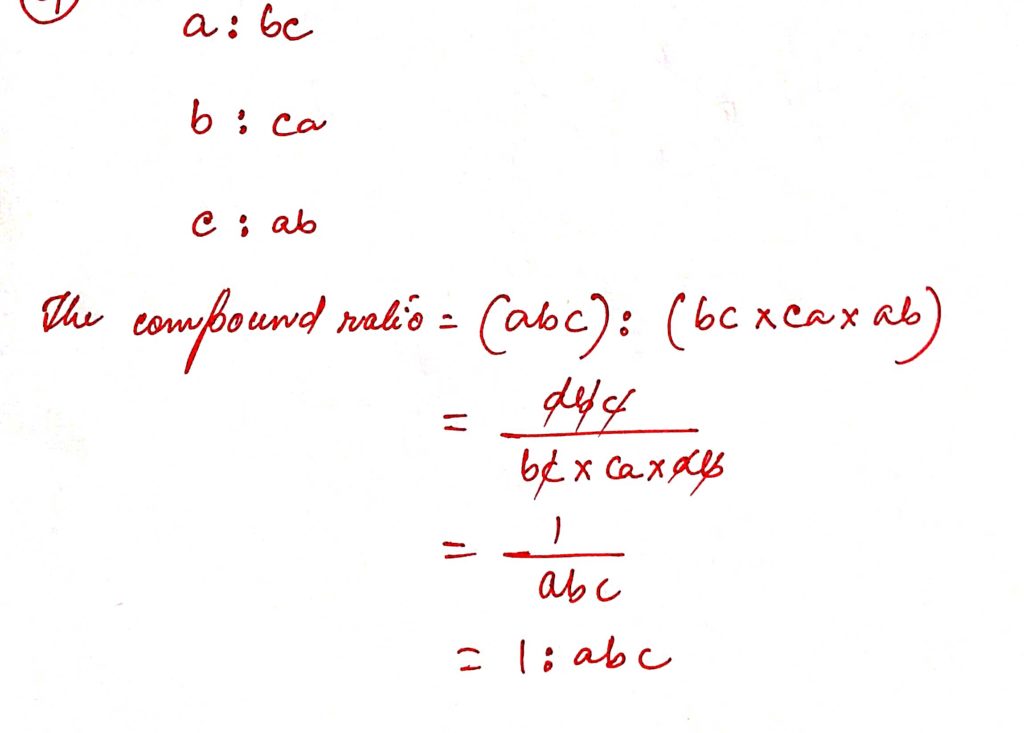 a : bc
b : ca
c : ab
The compound ratio = (abc) : (bc x ca x ab)
= abc / bc x ca x ab
= 1 / abc
= 1 : abc